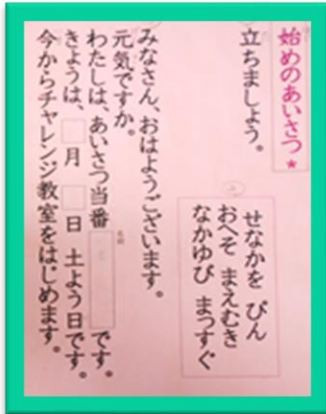 始めのあいさつ★
立ちましょう。
せなかを ぴん
おへそ まえむき
なかゆび まっすぐ
みなさん、おはようございます。
元気ですか。
わたしは、あいさつ当番
名前
です。
きょうは、 月 日 土よう日です。
今からチャレンジ教室をはじめます。